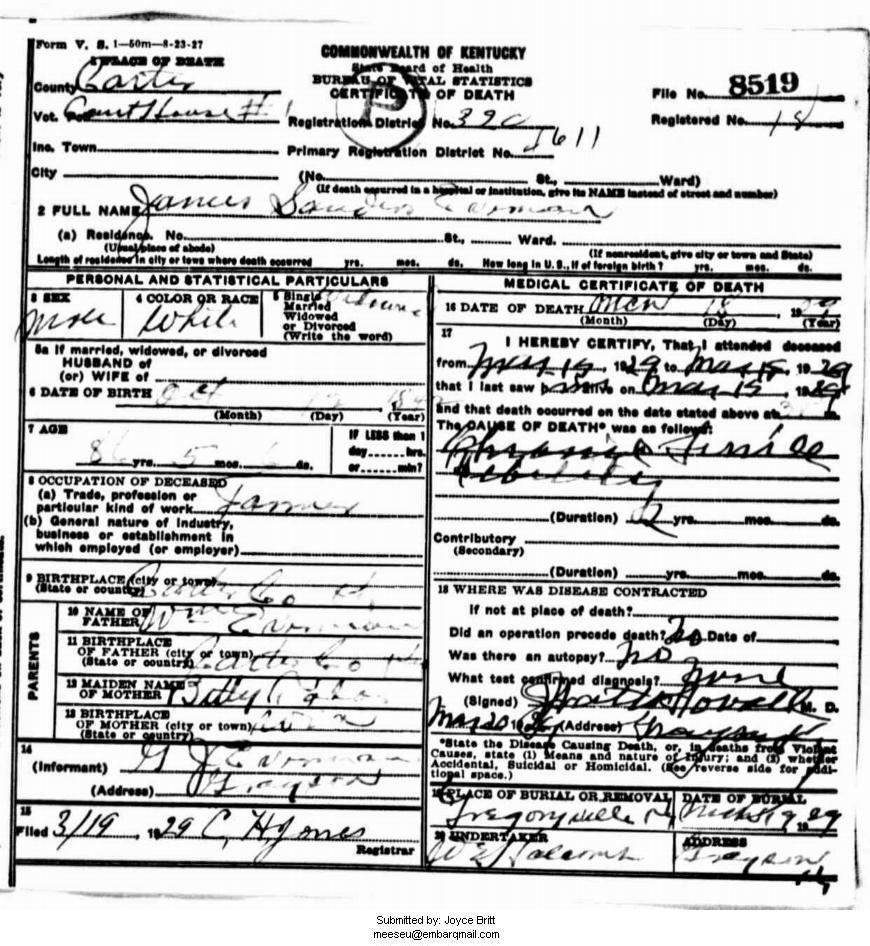 Form V. S. 1-50m-8-23-27
COMMONWEALTH OF KENTUCKY
State Board of Health
BUREAU OF VITAL STATISTICS
CERTIFICATE OF DEATH
1 PLACE OF DEATH
County Carter
Vot. Pct. Court House # 1
Inc. Town
City
File No. 8519
Registered No. 18
Registration District No. 390
Primary Registration District No. 1611
(No. St., Ward)
(If death occurred in a hospital or institution, give its NAME instead of street and number)
2 FULL NAME James Sanders Everman
(a) Residence. No. St., Ward.
(Usual place of abode) (If nonresident, give city or town and State)
Length of residence in city or town where death occurred yrs. mos. ds. How long in U. S., if of foreign birth? yrs. mos. ds.
PERSONAL AND STATISTICAL PARTICULARS
3 SEX
Male
4 COLOR OR RACE
White
5 Single
Married
Widowed
or Divorced
(Write the word)
Widowed
5a If married, widowed, or divorced
HUSBAND of
(or) WIFE of
6 DATE OF BIRTH Oct 12, 1842
(Month) (Day) (Year)
7 AGE
86 yrs. 5 mos. 6 ds.
IF LESS than 1
day hrs.
or min?
8 OCCUPATION OF DECEASED
(a) Trade, profession or
particular kind of work Farmer
(b) General nature of industry,
business or establishment in
which employed (or employer)
9 BIRTHPLACE (city or town)
(State or country) Carter Co Ky
PARENTS
10 NAME OF
FATHER Wm Everman
11 BIRTHPLACE
OF FATHER (city or town)
(State or country) Carter Co Ky
12 MAIDEN NAME
OF MOTHER Betty
13 BIRTHPLACE
OF MOTHER (city or town)
(State or country)
14
(Informant) G J Everman
(Address) Grayson
15
Filed 3/19, 1929 C, H Jones
Registrar
MEDICAL CERTIFICATE OF DEATH
16 DATE OF DEATH Mch 18, 1929
(Month) (Day) (Year)
17
I HEREBY CERTIFY, That I attended deceased
from Mar 15, 1929 to Mar 15, 1929
that I last saw him alive on Mar 15, 1929
and that death occurred on the date stated above at
The CAUSE OF DEATH* was as follows:
Chronic Senile
debility
(Duration) 2 yrs. mos. ds.
Contributory
(Secondary)
(Duration) yrs. mos. ds.
18 WHERE WAS DISEASE CONTRACTED
If not at place of death?
Did an operation precede death? No Date of
Was there an autopsy? no
What test confirmed diagnosis? none
(Signed) Stovall M. D.
Mar 20 1929 (Address) Grayson Ky
*State the Disease Causing Death, or, in deaths from Violent
Causes, state (1) Means and nature of Injury; and (2) whether
Accidental, Suicidal or Homicidal. (See reverse side for addi-
tional space.)
19 PLACE OF BURIAL OR REMOVAL
Gregoryville Ky
DATE OF BURIAL
Mch 19 1929
20 UNDERTAKER
W E Holcomb
ADDRESS
Grayson
Ky
Submitted by: Joyce Britt
meeseu@embarqmail.com